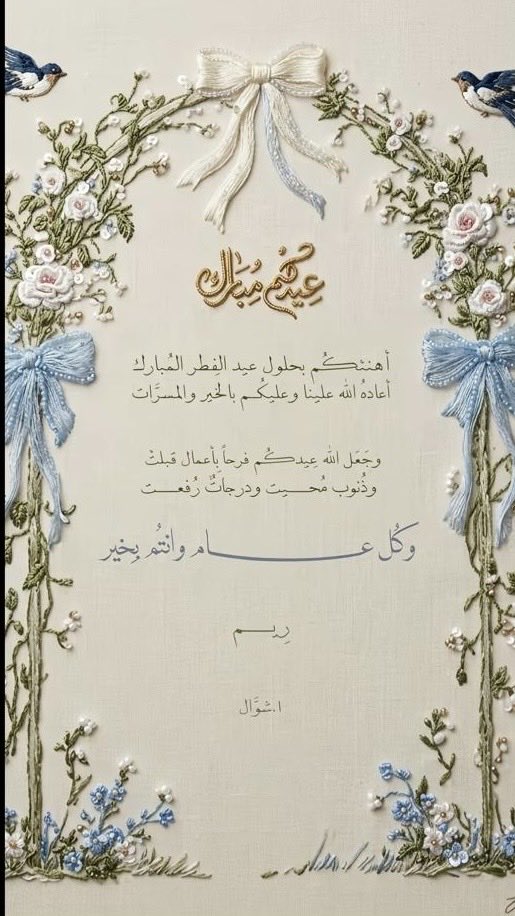 عيدكم مُبارك
أهنئكُم بحلول عيد الفطر المُبارك
أعادهُ الله علينا وعليكُم بالخير والمسرَّات
وجَعَل الله عِيدكُم فرحاً بِأعمال قبلتْ
وذُنوب مُحيت ودرجاتٌ رُفعت
وكُل عام وانتُم بِخير
رِيم
١.شوَّال